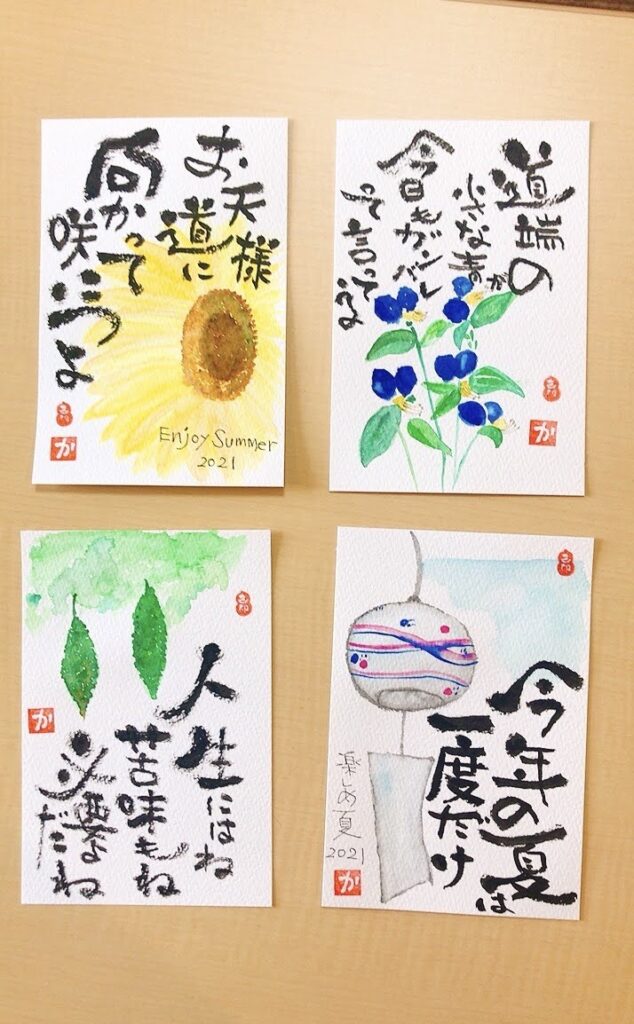 お天道様に
向かって
咲こうよ
Enjoy Summer
2021
か
道端の
小さな青が
今日もガンバレ
って言ってるよ
か
人生にはね
苦味もね
必要だね
か
今年の夏は
一度だけ
楽しめ夏
2021
か